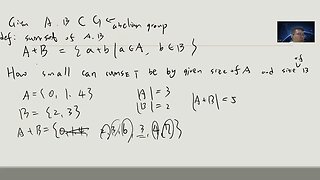 Given A. B ⊂ G ← abelian group
def: sumset of A. B
A+B = { a+b | a∈A, b∈B }
How small can sumset be by given size of A and size of B
A = {0, 1, 4} |A| = 3
B = {2, 3} |B| = 2 |A+B| = 5
A+B = {